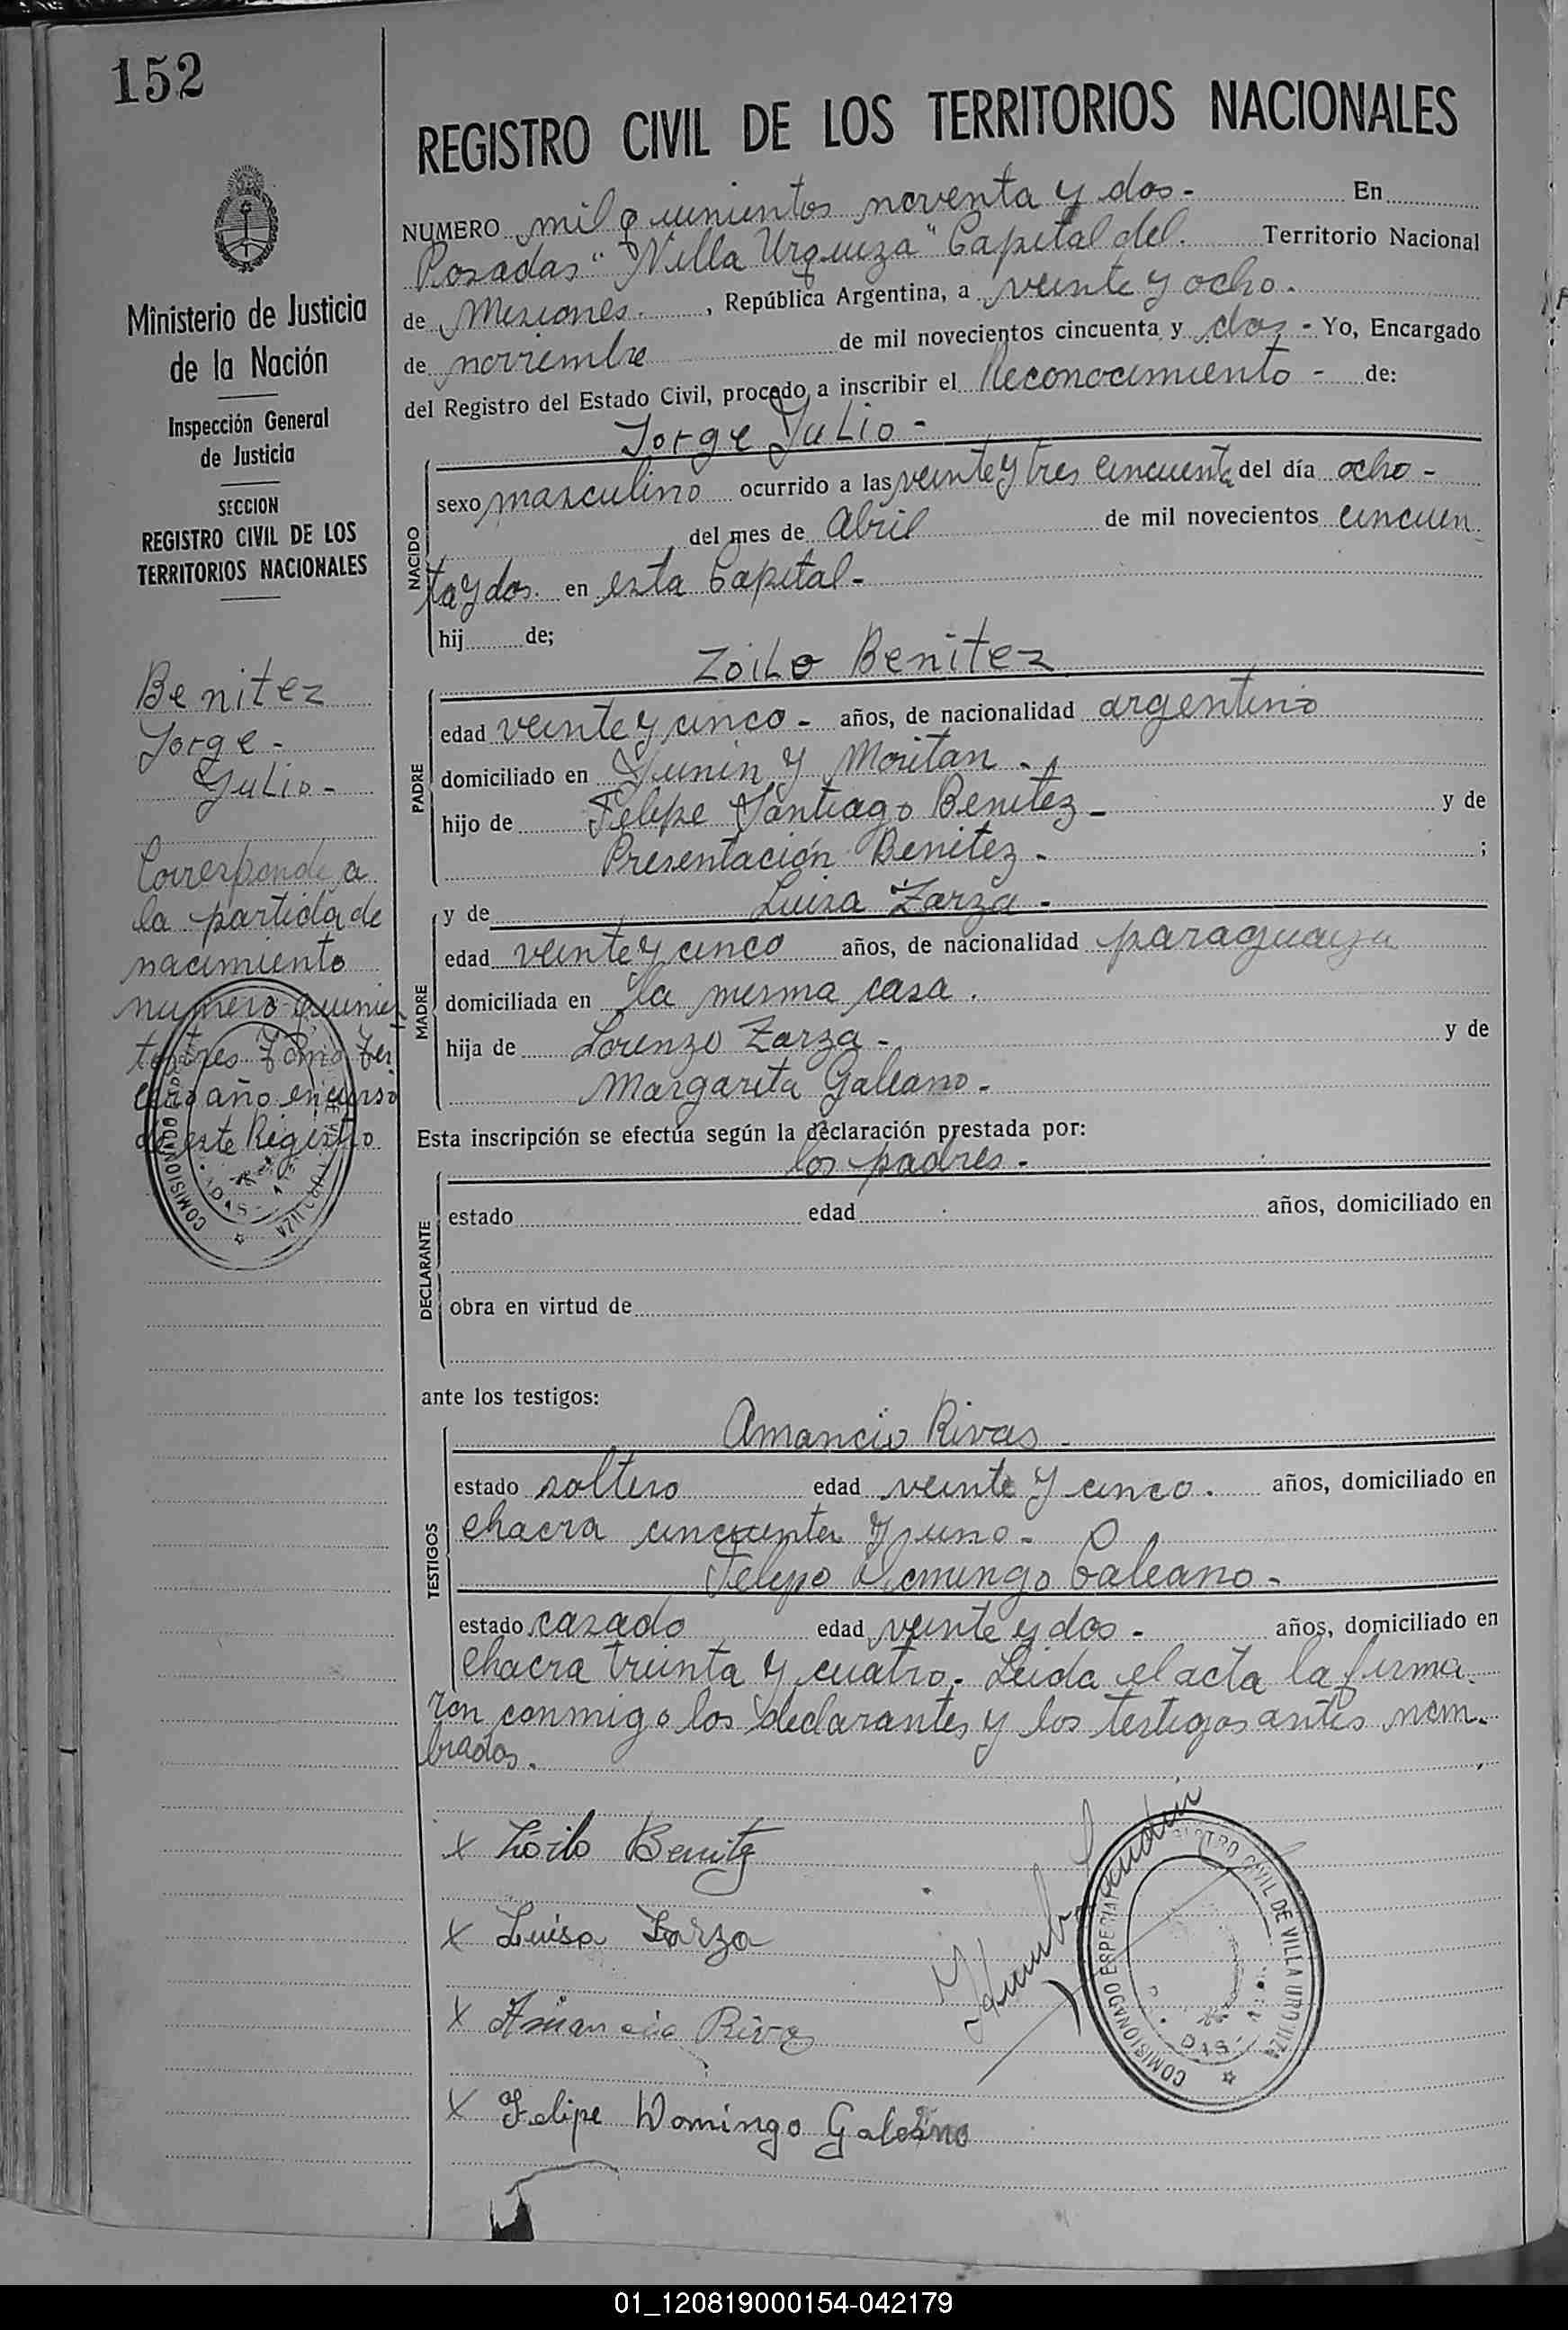 152
REGISTRO CIVIL DE LOS TERRITORIOS NACIONALES
Ministerio de Justicia
de la Nación
Inspección General
de Justicia
SECCION
REGISTRO CIVIL DE LOS
TERRITORIOS NACIONALES
Benitez
Jorge -
Julio -
Corresponde a
la partida de
nacimiento
numero quinien
tos tres Tomo ter
cero año en curso
de este Registro
NUMERO mil quinientos noventa y dos - En
Posadas "Villa Urquiza" Capital del Territorio Nacional
de Misiones. , República Argentina, a veinte y ocho.
de noviembre de mil novecientos cincuenta y dos - Yo, Encargado
del Registro del Estado Civil, procedo a inscribir el Reconocimiento - de:
Jorge Julio -
NACIDO
sexo masculino ocurrido a las veinte y tres cincuenta del día ocho -
del mes de Abril de mil novecientos cincuen
ta y dos. en esta Capital -
hij de;
Zoilo Benitez
PADRE
edad veinte y cinco - años, de nacionalidad argentino
domiciliado en Junin y Moritan -
hijo de Felipe Santiago Benitez - y de
Presentación Benitez - ;
y de Luisa Zarza -
MADRE
edad veinte y cinco años, de nacionalidad paraguaya
domiciliada en la misma casa.
hija de Lorenzo Zarza - y de
Margarita Galeano -
Esta inscripción se efectúa según la declaración prestada por:
los padres -
DECLARANTE
estado edad años, domiciliado en
obra en virtud de
ante los testigos:
Amancio Rivas -
TESTIGOS
estado soltero edad veinte y cinco. años, domiciliado en
chacra cincuenta y uno -
Felipe Domingo Galeano -
estado casado edad veinte y dos - años, domiciliado en
chacra treinta y cuatro. Leida el acta la firma
ron conmigo los declarantes y los testigos antes nom-
brados.
x Zoilo Benitez
x Luisa Zarza
x Amancio Rivas
x Felipe Domingo Galeano
COMISIONADO ESPECIAL REGISTRO CIVIL DE VILLA URQUIZA
01_120819000154-042179